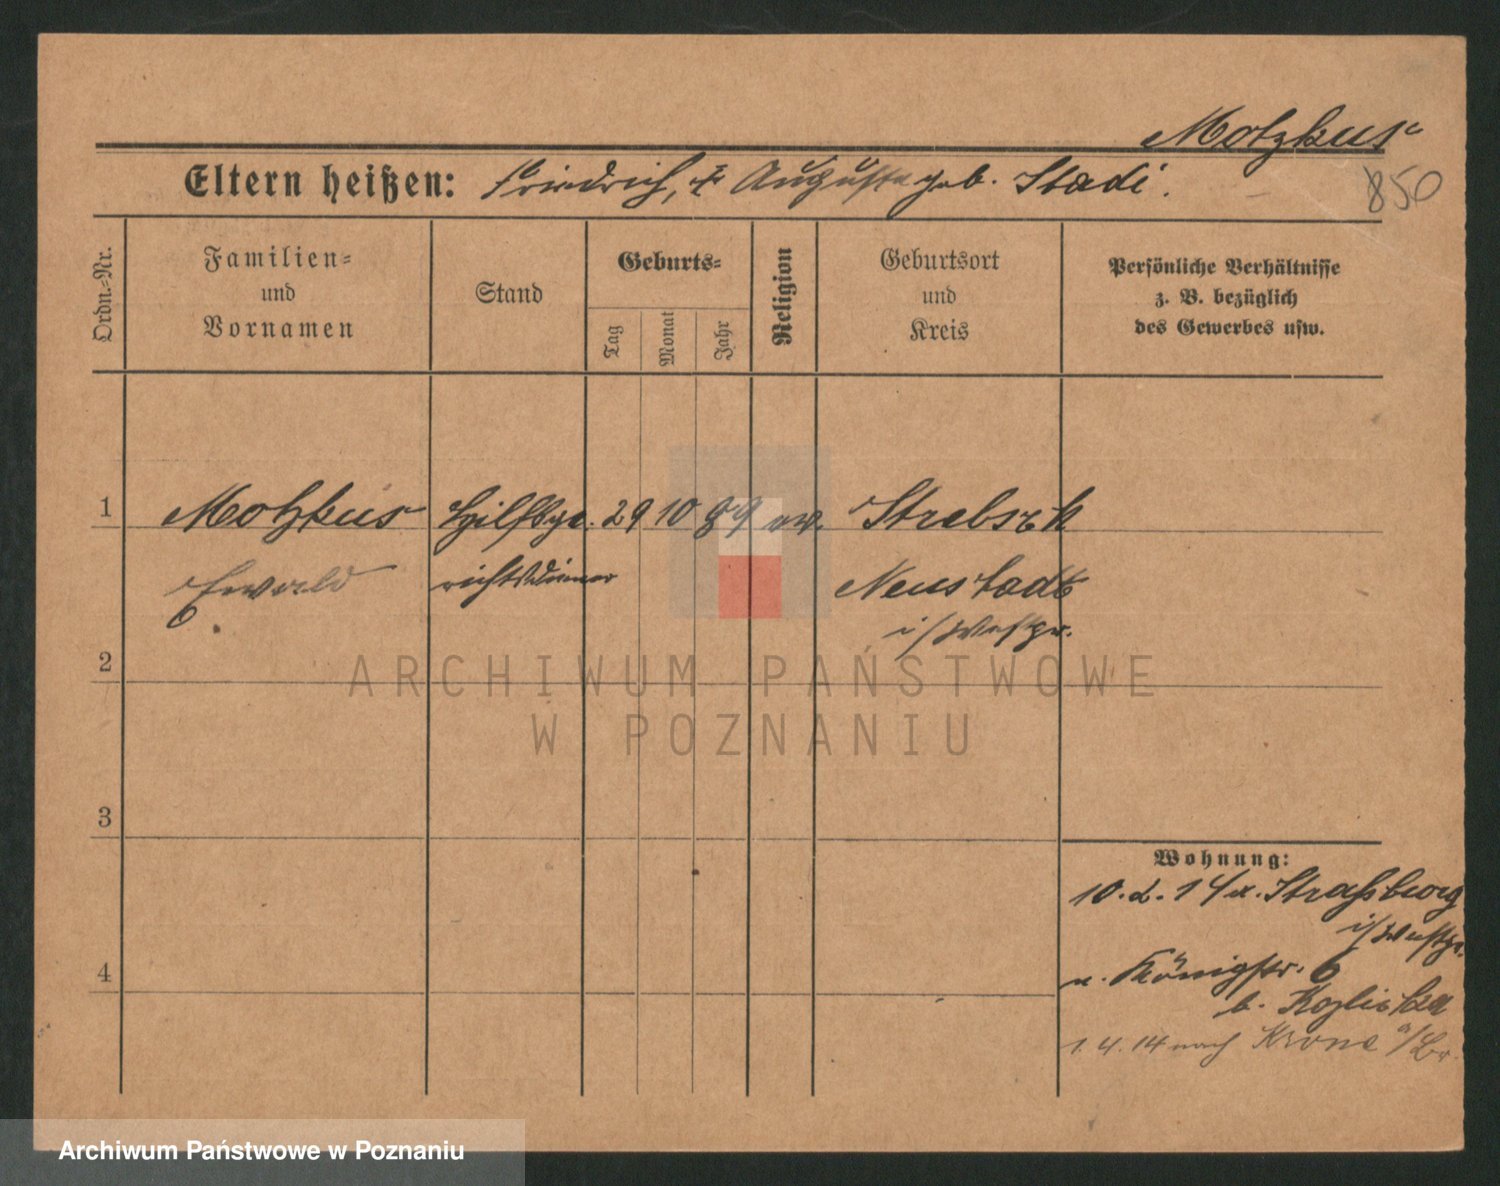 Motzkus
Eltern heißen: Friedrich, & Auguste geb. Stadi.
850
Ordn.-Nr.
Familien- und Vornamen
Stand
Geburts-
Tag
Monat
Jahr
Religion
Geburtsort und Kreis
Persönliche Verhältnisse
z. B. bezüglich
des Gewerbes usw.
1 Motzkus Hilfsge- 29 10 89 ev.
Ewald richtsdiener Neustadt
i/Westpr.
2
ARCHIWUM PAŃSTWOWE
W POZNANIU
3
Wohnung:
10.2.14 v. Straßburg
i/Westpr.
n. Königstr. 6
b.
4
1.4.14 nach Krone a/Br.
Archiwum Państwowe w Poznaniu